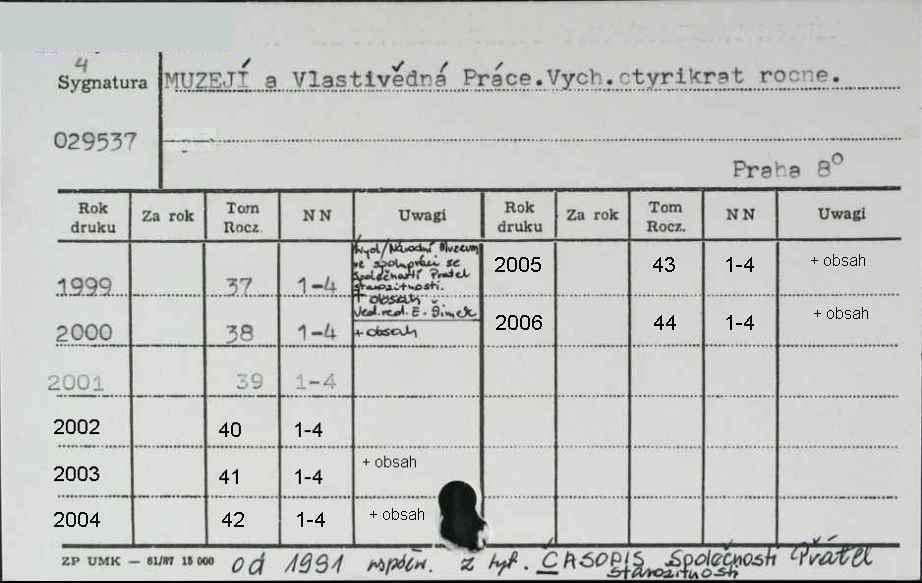 4
Sygnatura MUZEJÍ a Vlastivědná Práce.Vych.čtyrikrat rocne.
029537
Praha 8°
Rok druku Za rok Tom Rocz. N N Uwagi Rok druku Za rok Tom Rocz. N N Uwagi
1999 37 1-4 Wyd/Národní Muzeum ve spolupráci se Společností Pratel starozitností. + obsah Ved.red. E. Šimek 2005 43 1-4 + obsah
2000 38 1-4 + obsah 2006 44 1-4 + obsah
2001 39 1-4
2002 40 1-4
2003 41 1-4 + obsah
2004 42 1-4 + obsah
ZP UMK — 61/87 15 000 od 1991 wspóln. z tyt. ČASOPIS Společnosti Přátel
starozitnosti